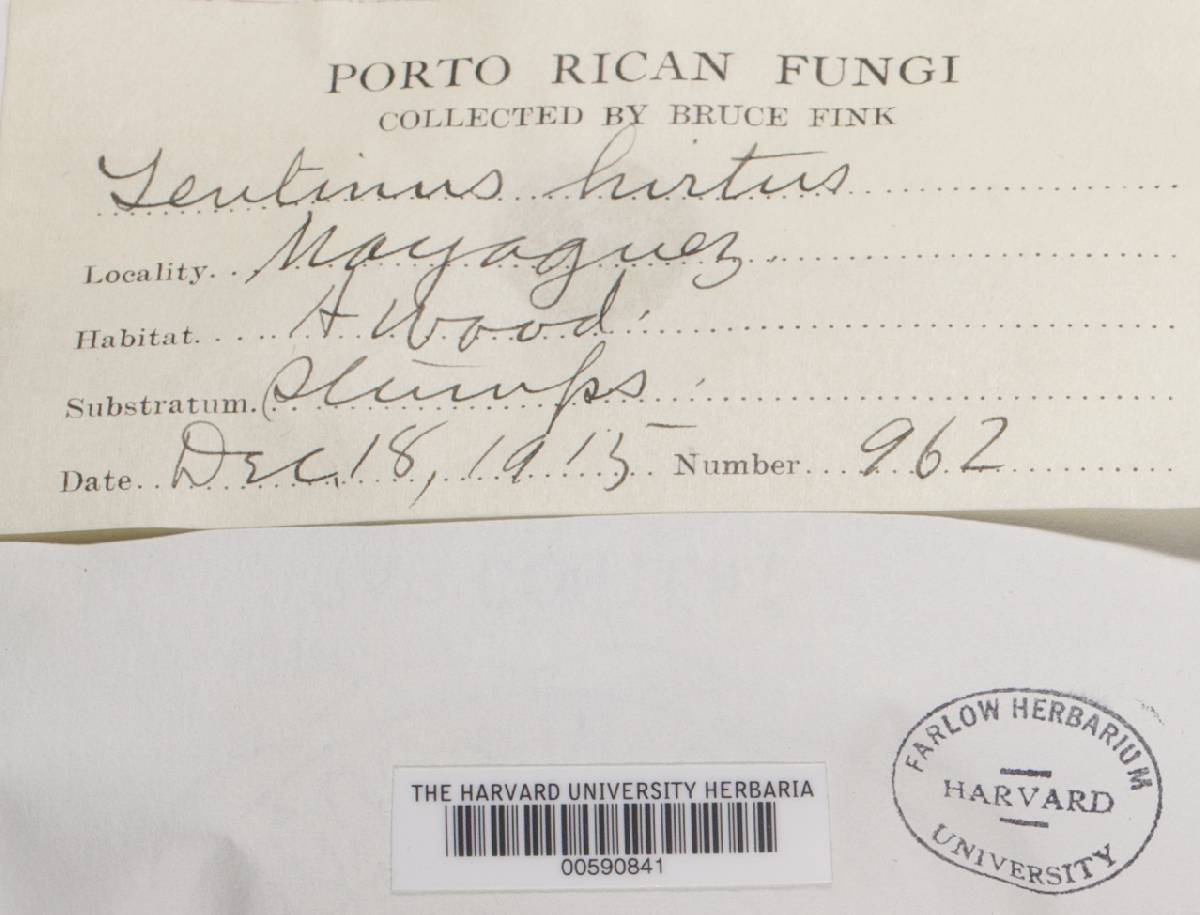 PORTO RICAN FUNGI
COLLECTED BY BRUCE FINK
Lentinus hirtus
Locality. Mayaguez
Habitat. Wood
Substratum. Stumps
Date. Dec. 18, 1915 Number 962
FARLOW HERBARIUM
HARVARD
UNIVERSITY
THE HARVARD UNIVERSITY HERBARIA
00590841